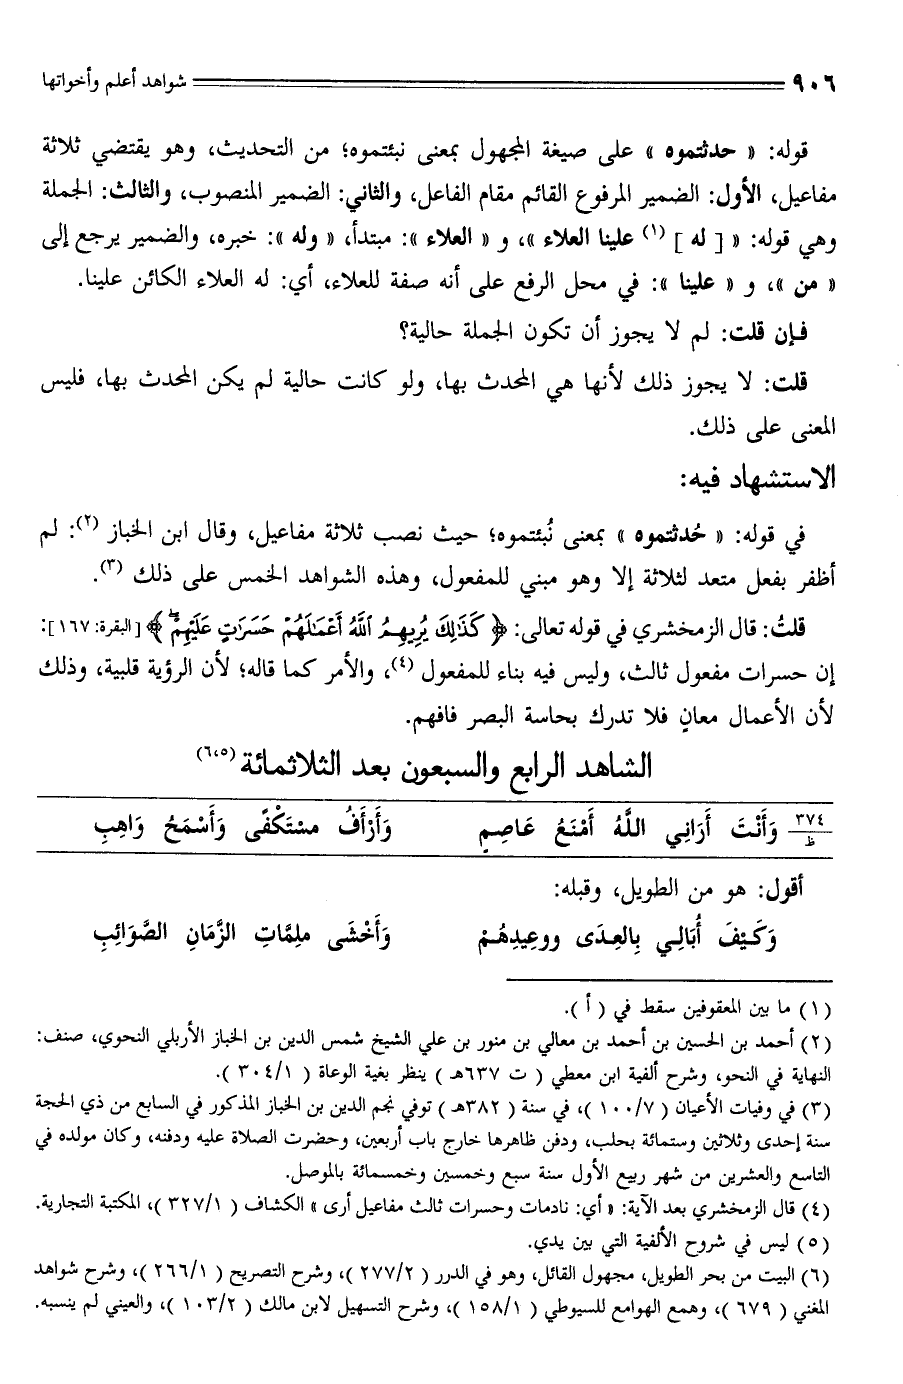 ٩٠٦ شواهد أعلم وأخواتها
قوله: « حدثتموه » على صيغة المجهول بمعنى نبئتموه؛ من التحديث، وهو يقتضي ثلاثة
مفاعيل، الأول: الضمير المرفوع القائم مقام الفاعل، والثاني: الضمير المنصوب، والثالث: الجملة
وهي قوله: « [ له ] (١) علينا العلاء »، و « العلاء »: مبتدأ، « وله »: خبره، والضمير يرجع إلى
« من »، و « علينا »: في محل الرفع على أنه صفة للعلاء، أي: له العلاء الكائن علينا.
فإن قلت: لم لا يجوز أن تكون الجملة حالية؟
قلت: لا يجوز ذلك لأنها هي المحدث بها، ولو كانت حالية لم يكن المحدث بها، فليس
المعنى على ذلك.
الاستشهاد فيه:
في قوله: « حُدثتموه » بمعنى نُبئتموه؛ حيث نصب ثلاثة مفاعيل، وقال ابن الخباز (٢): لم
أظفر بفعل متعد لثلاثة إلا وهو مبني للمفعول، وهذه الشواهد الخمس على ذلك (٣).
قلتُ: قال الزمخشري في قوله تعالى: ﴿ كَذَٰلِكَ يُرِيهِمُ ٱللَّهُ أَعْمَـٰلَهُمْ حَسَرَٰتٍ عَلَيْهِمْ ۖ ﴾ [البقرة: ١٦٧]:
إن حسرات مفعول ثالث، وليس فيه بناء للمفعول (٤)، والأمر كما قاله؛ لأن الرؤية قلبية، وذلك
لأن الأعمال معانٍ فلا تدرك بحاسة البصر فافهم.
الشاهد الرابع والسبعون بعد الثلاثمائة (٦،٥)
٣٧٤/ظ وَأَنْتَ أَرَانِي اللَّهُ أَمْنَعُ عَاصِمٍ وَأَرْأَفُ مسْتَكْفًى وَأَسْمَحُ وَاهِبِ
أقول: هو من الطويل، وقبله:
وَكَيْفَ أُبَالِي بِالعِدَى ووعِيدِهُمْ وَأَخْشَى ملِمَّاتِ الزَّمَانِ الصَّوَائِبِ
(١) ما بين المعقوفين سقط في ( أ ).
(٢) أحمد بن الحسين بن أحمد بن معالي بن منور بن علي الشيخ شمس الدين بن الخباز الأربلي النحوي، صنف:
النهاية في النحو، وشرح ألفية ابن معطي ( ت ٦٣٧هـ ) ينظر بغية الوعاة ( ٣٠٤/١ ).
(٣) في وفيات الأعيان ( ١٠٠/٧ )، في سنة ( ٣٨٢هـ ) توفي نجم الدين بن الخباز المذكور في السابع من ذي الحجة
سنة إحدى وثلاثين وستمائة بحلب، ودفن ظاهرها خارج باب أربعين، وحضرت الصلاة عليه ودفنه، وكان مولده في
التاسع والعشرين من شهر ربيع الأول سنة سبع وخمسين وخمسمائة بالموصل.
(٤) قال الزمخشري بعد الآية: « أي: نادمات وحسرات ثالث مفاعيل أرى » الكشاف ( ٣٢٧/١ )، المكتبة التجارية.
(٥) ليس في شروح الألفية التي بين يدي.
(٦) البيت من بحر الطويل، مجهول القائل، وهو في الدرر ( ٢٧٧/٢ )، وشرح التصريح ( ٢٦٦/١ )، وشرح شواهد
المغني ( ٦٧٩ )، وهمع الهوامع للسيوطي ( ١٥٨/١ )، وشرح التسهيل لابن مالك ( ١٠٣/٢ )، والعيني لم ينسبه.